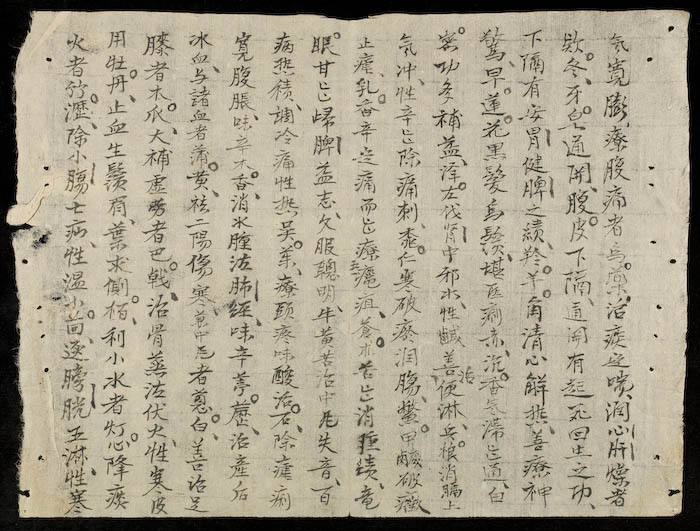 氣寛膨療腹痛者烏藥治痰定喘润心肝燥者
欵冬牙皂通開腹皮下隔通開有起死回生之功
下隔有安胃健脾之績羚羊角清心解热善療神
驚旱蓮花黑髮烏鬚堪医痢赤沉香氣滞能通白
蜜功多補益澤左伐肾中邪水性鹹善治便淋根消膈上
氣沖性辛能除痛刺桃仁寒破瘀润腸鱉甲鹹破癥
止瘧乳香辛定痛而能療癰疽蒼朮苦能消腫績竜
眼甘能歸脾益志久服聰明牛黄苦治中风失音百
病热積調冷痛性热吴茱療頭疼味酸活石除瘧痢
寛腹脹味辛木香消水腫泣肺經味辛治產后
冰血与諸血者蒲黄祛二陽傷寒並中风者葱白善治足
膝者木爪大補虚劳者巴戟治骨蒸泣伏火性寒皮
用牡丹止血生鬚眉葉求側栢利小水者灯心降痰
火者竹瀝除小腸七疝性温小茴逐膀胱五淋性寒